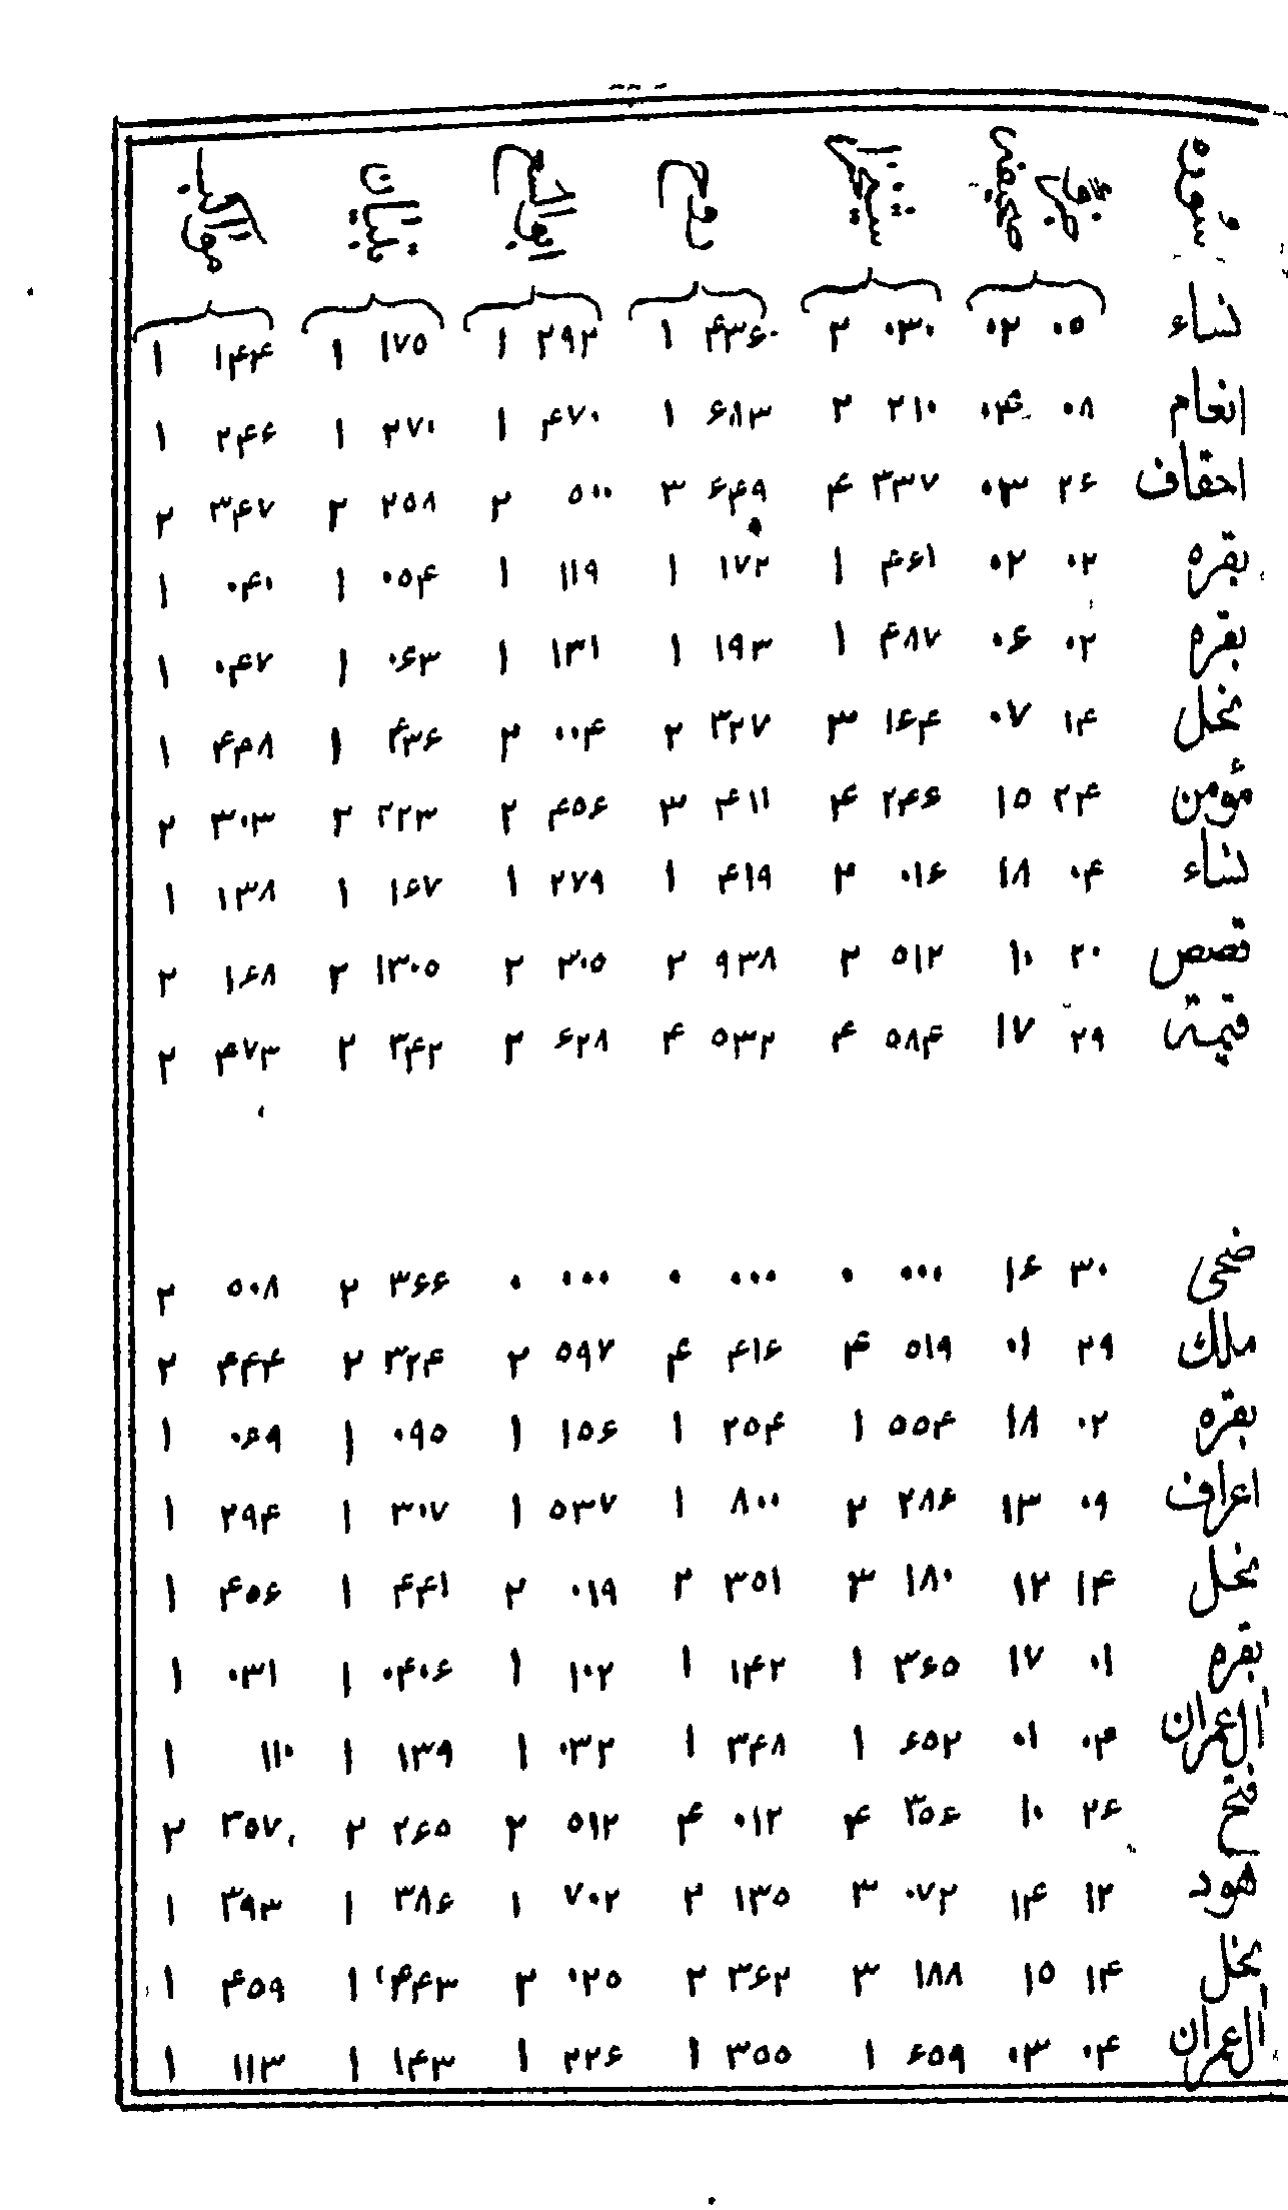 سوره جزء صحیفه شیخزاده روح ابوالسعود تبیان مواکب
نساء ۰۵ ۰۲ ۰۳۰ ۲ ۴۳۶ ۱ ۲۹۲ ۱ ۱۷۵ ۱ ۱۴۴ ۱
انعام ۰۸ ۰۴ ۲۱۰ ۲ ۶۸۳ ۱ ۴۷۰ ۱ ۲۷۰ ۱ ۲۴۶ ۱
احقاف ۲۶ ۰۳ ۳۳۷ ۴ ۶۴۹ ۳ ۵۰۰ ۲ ۲۵۸ ۲ ۳۴۷ ۲
بقره ۰۲ ۰۲ ۴۶۱ ۱ ۱۷۲ ۱ ۱۱۹ ۱ ۰۵۴ ۱ ۰۴۰ ۱
بقره ۰۲ ۰۶ ۴۸۷ ۱ ۱۹۳ ۱ ۱۳۱ ۱ ۰۶۳ ۱ ۰۴۷ ۱
نحل ۱۴ ۰۷ ۱۶۴ ۳ ۳۲۷ ۲ ۰۰۴ ۲ ۴۳۶ ۱ ۴۴۸ ۱
مؤمن ۲۴ ۱۵ ۲۴۶ ۴ ۴۱۱ ۳ ۴۵۶ ۲ ۲۲۳ ۲ ۳۰۳ ۲
نساء ۰۴ ۱۸ ۰۱۶ ۲ ۴۱۹ ۱ ۲۷۹ ۱ ۱۶۷ ۱ ۱۳۸ ۱
قصص ۲۰ ۱۰ ۵۱۲ ۲ ۹۳۸ ۲ ۳۰۵ ۲ ۱۳۰۵ ۲ ۱۶۸ ۲
قیمة ۲۹ ۱۷ ۵۸۴ ۴ ۵۳۲ ۴ ۶۲۸ ۲ ۳۴۲ ۲ ۴۷۳ ۲
ضحی ۳۰ ۱۶ ۰۰۰ ۰ ۰۰۰ ۰ ۰۰۰ ۰ ۳۶۶ ۲ ۵۰۸ ۲
ملك ۲۹ ۰۱ ۵۱۹ ۴ ۴۱۶ ۴ ۵۹۷ ۲ ۳۲۴ ۲ ۴۴۴ ۲
بقره ۰۲ ۱۸ ۵۵۴ ۱ ۲۵۴ ۱ ۱۵۶ ۱ ۰۹۵ ۱ ۰۶۹ ۱
اعراف ۰۹ ۱۳ ۲۸۶ ۲ ۸۰۰ ۱ ۵۳۷ ۱ ۳۰۷ ۱ ۲۹۴ ۱
نحل ۱۴ ۱۲ ۱۸۰ ۳ ۳۵۱ ۲ ۰۱۹ ۲ ۴۴۱ ۱ ۴۵۶ ۱
بقره ۰۱ ۱۷ ۳۶۵ ۱ ۱۴۲ ۱ ۱۰۲ ۱ ۰۴۰۶ ۱ ۰۳۱ ۱
آل عمران ۰۳ ۰۱ ۶۵۲ ۱ ۳۴۸ ۱ ۰۳۲ ۱ ۱۳۹ ۱ ۱۱۰ ۱
فتح ۲۶ ۱۰ ۳۵۶ ۴ ۰۱۲ ۴ ۵۱۲ ۲ ۲۶۵ ۲ ۳۵۷ ۲
هود ۱۲ ۱۴ ۰۷۲ ۳ ۱۳۵ ۲ ۷۰۲ ۱ ۳۸۶ ۱ ۳۹۳ ۱
نحل ۱۴ ۱۵ ۱۸۸ ۳ ۳۶۲ ۲ ۰۲۵ ۲ ۴۴۳ ۱ ۴۵۹ ۱
آل عمران ۰۴ ۰۳ ۶۵۹ ۱ ۳۵۵ ۱ ۲۲۶ ۱ ۱۴۳ ۱ ۱۱۳ ۱